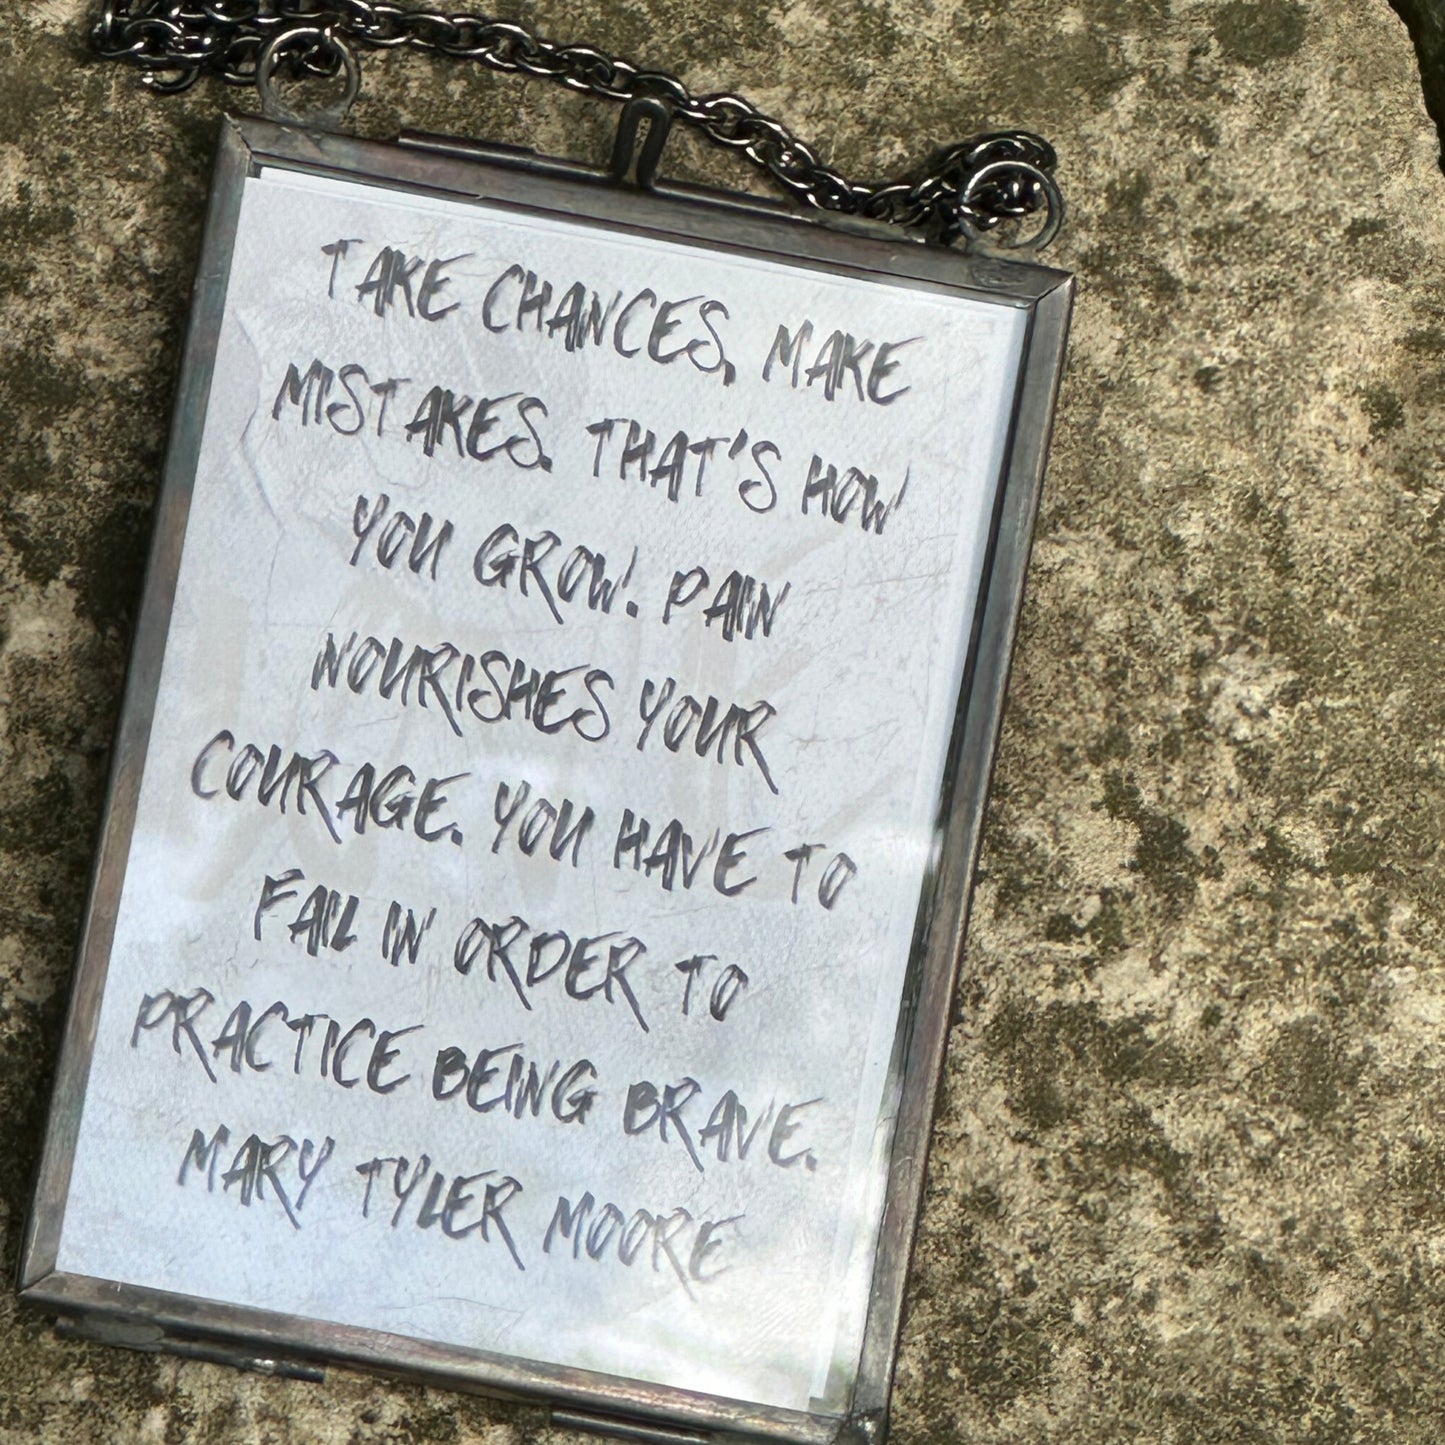 TAKE CHANCES, MAKE
MISTAKES. THAT'S HOW
YOU GROW. PAIN
NOURISHES YOUR
COURAGE. YOU HAVE TO
FAIL IN ORDER TO
PRACTICE BEING BRAVE.
MARY TYLER MOORE